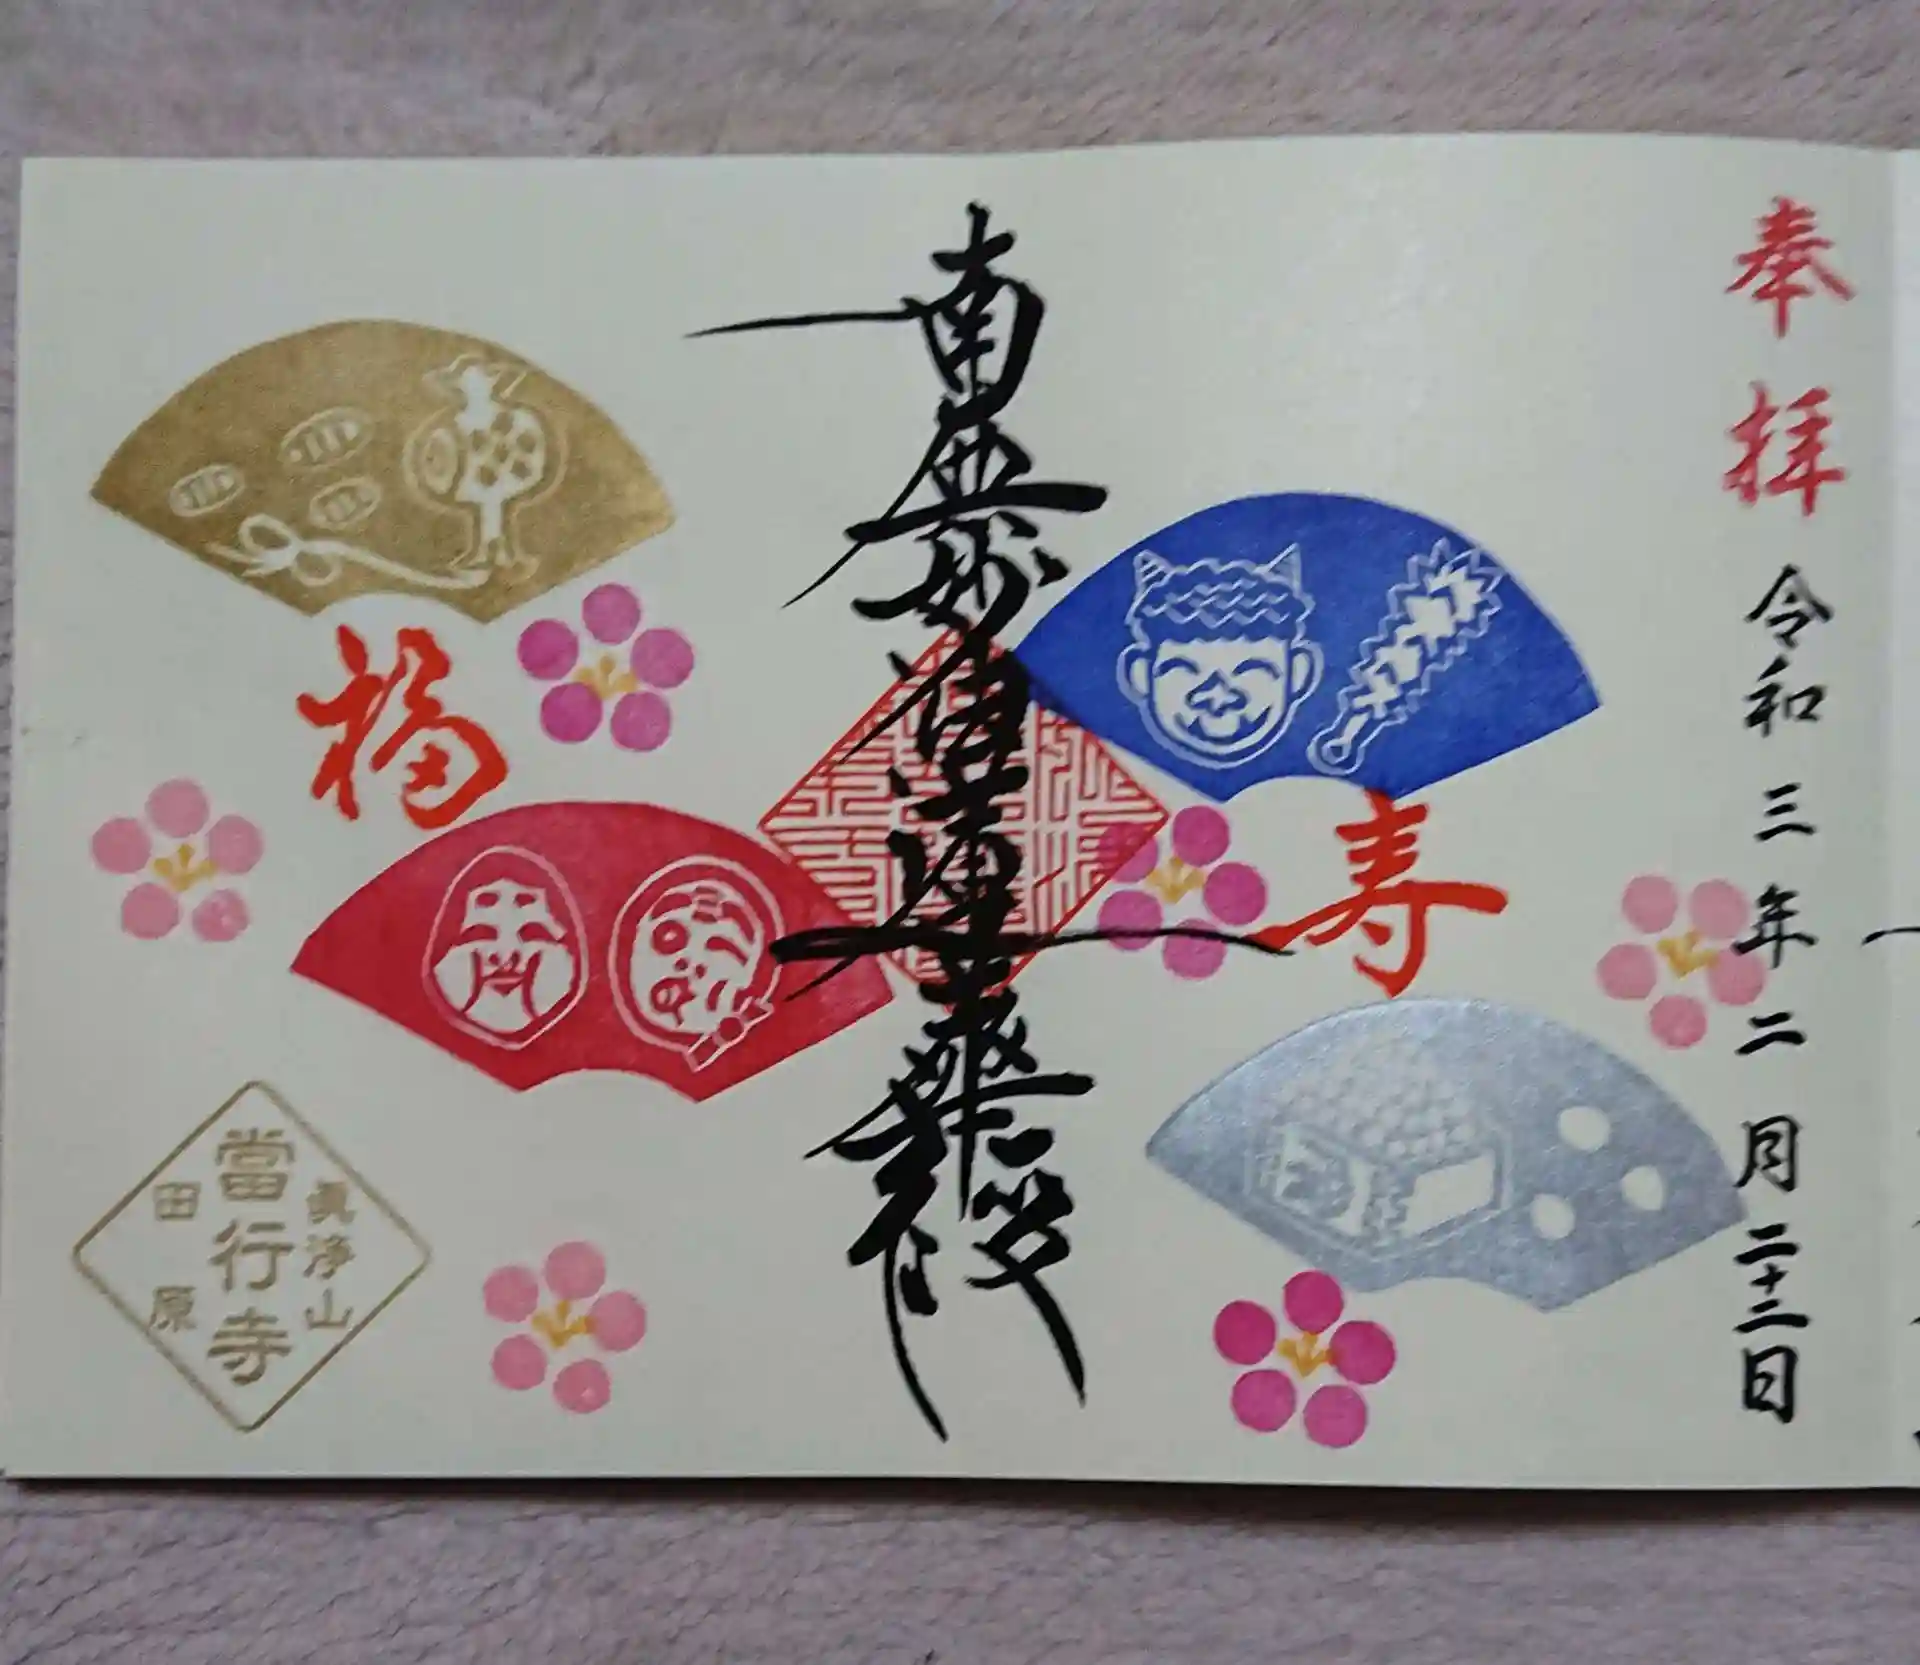 奉拝
令和三年二月二十二日
寿
南無妙法蓮華経
福
眞浄山
當行寺
田原